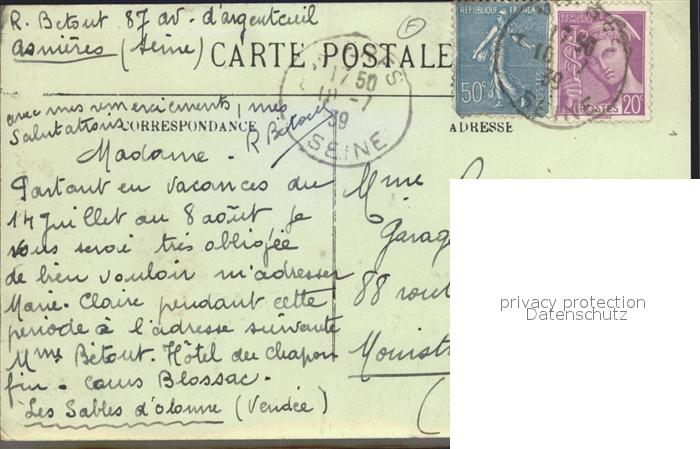 R. Betout 87 av. d'argenteuil
Asnières (Seine)
CARTE POSTALE
REPUBLIQUE FRANÇAISE
50c
POSTES
20c
17 50
10 - 7
39
SEINE
avec mes remerciements, mes
Salutations
R Bétout
CORRESPONDANCE
ADRESSE
Madame.
Partant en vacances du
14 Juillet au 8 août je
vous serai très obligée
de bien vouloir m'adresser
Marie-Claire pendant cette
période à l'adresse suivante
Mme Bétout. Hôtel du Chapon
fin - cours Blossac.
Les Sables d'olonne (Vendée)
Mme
Garag
88 rout
Monistr
(
privacy protection
Datenschutz